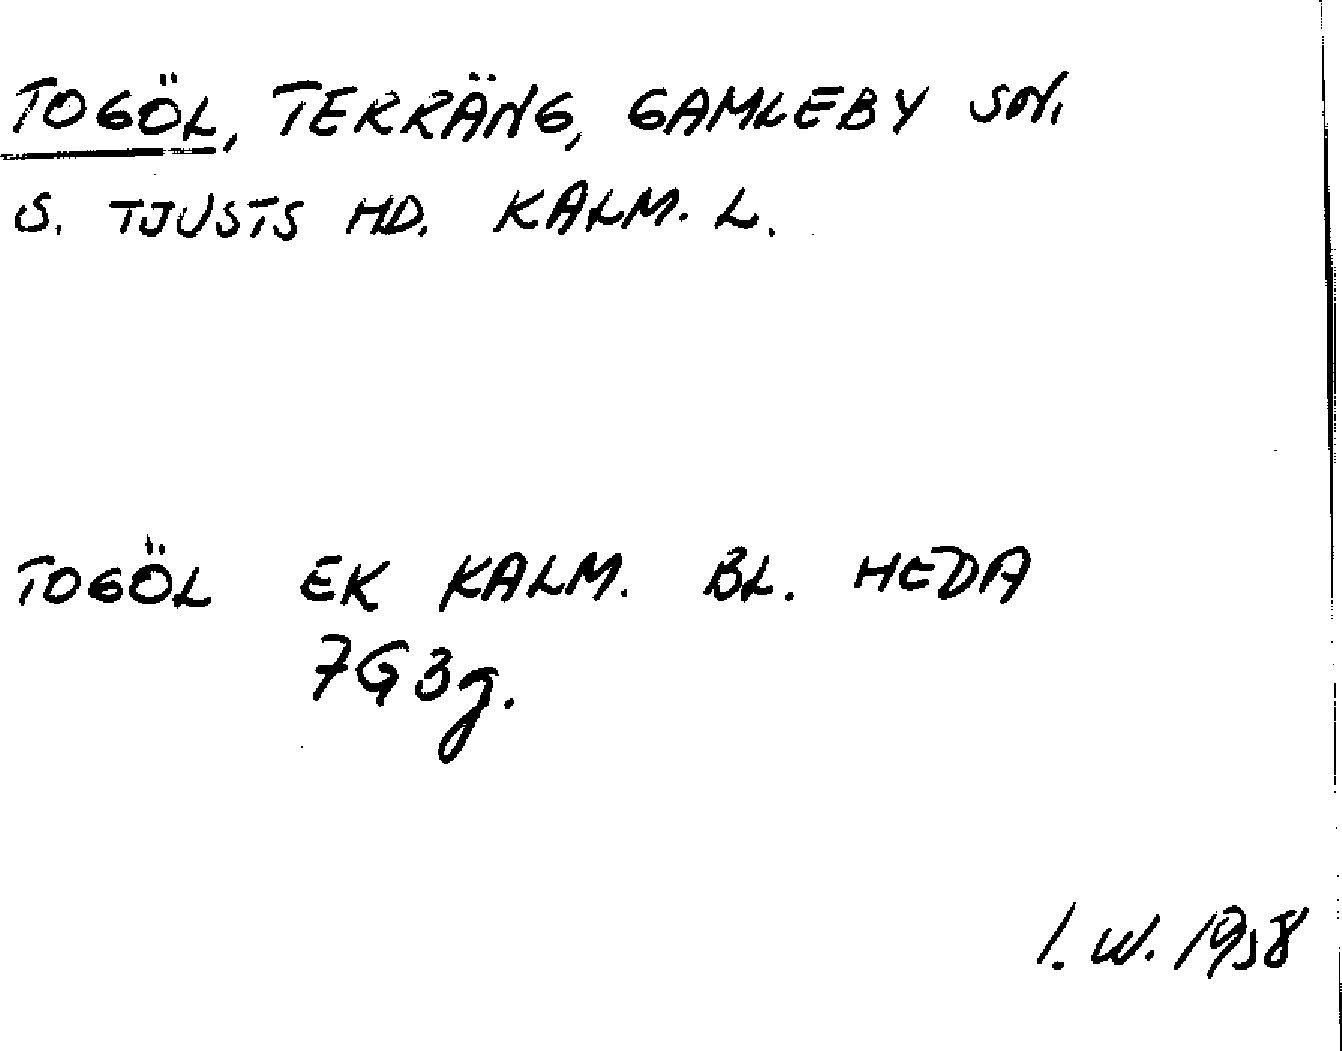 TOGÖL, TERRÄNG, GAMLEBY SN.
S. TJUSTS HD. KALM. L.
TOGÖL EK KALM. BL. HEDA
7G3g.
I. W. 1958